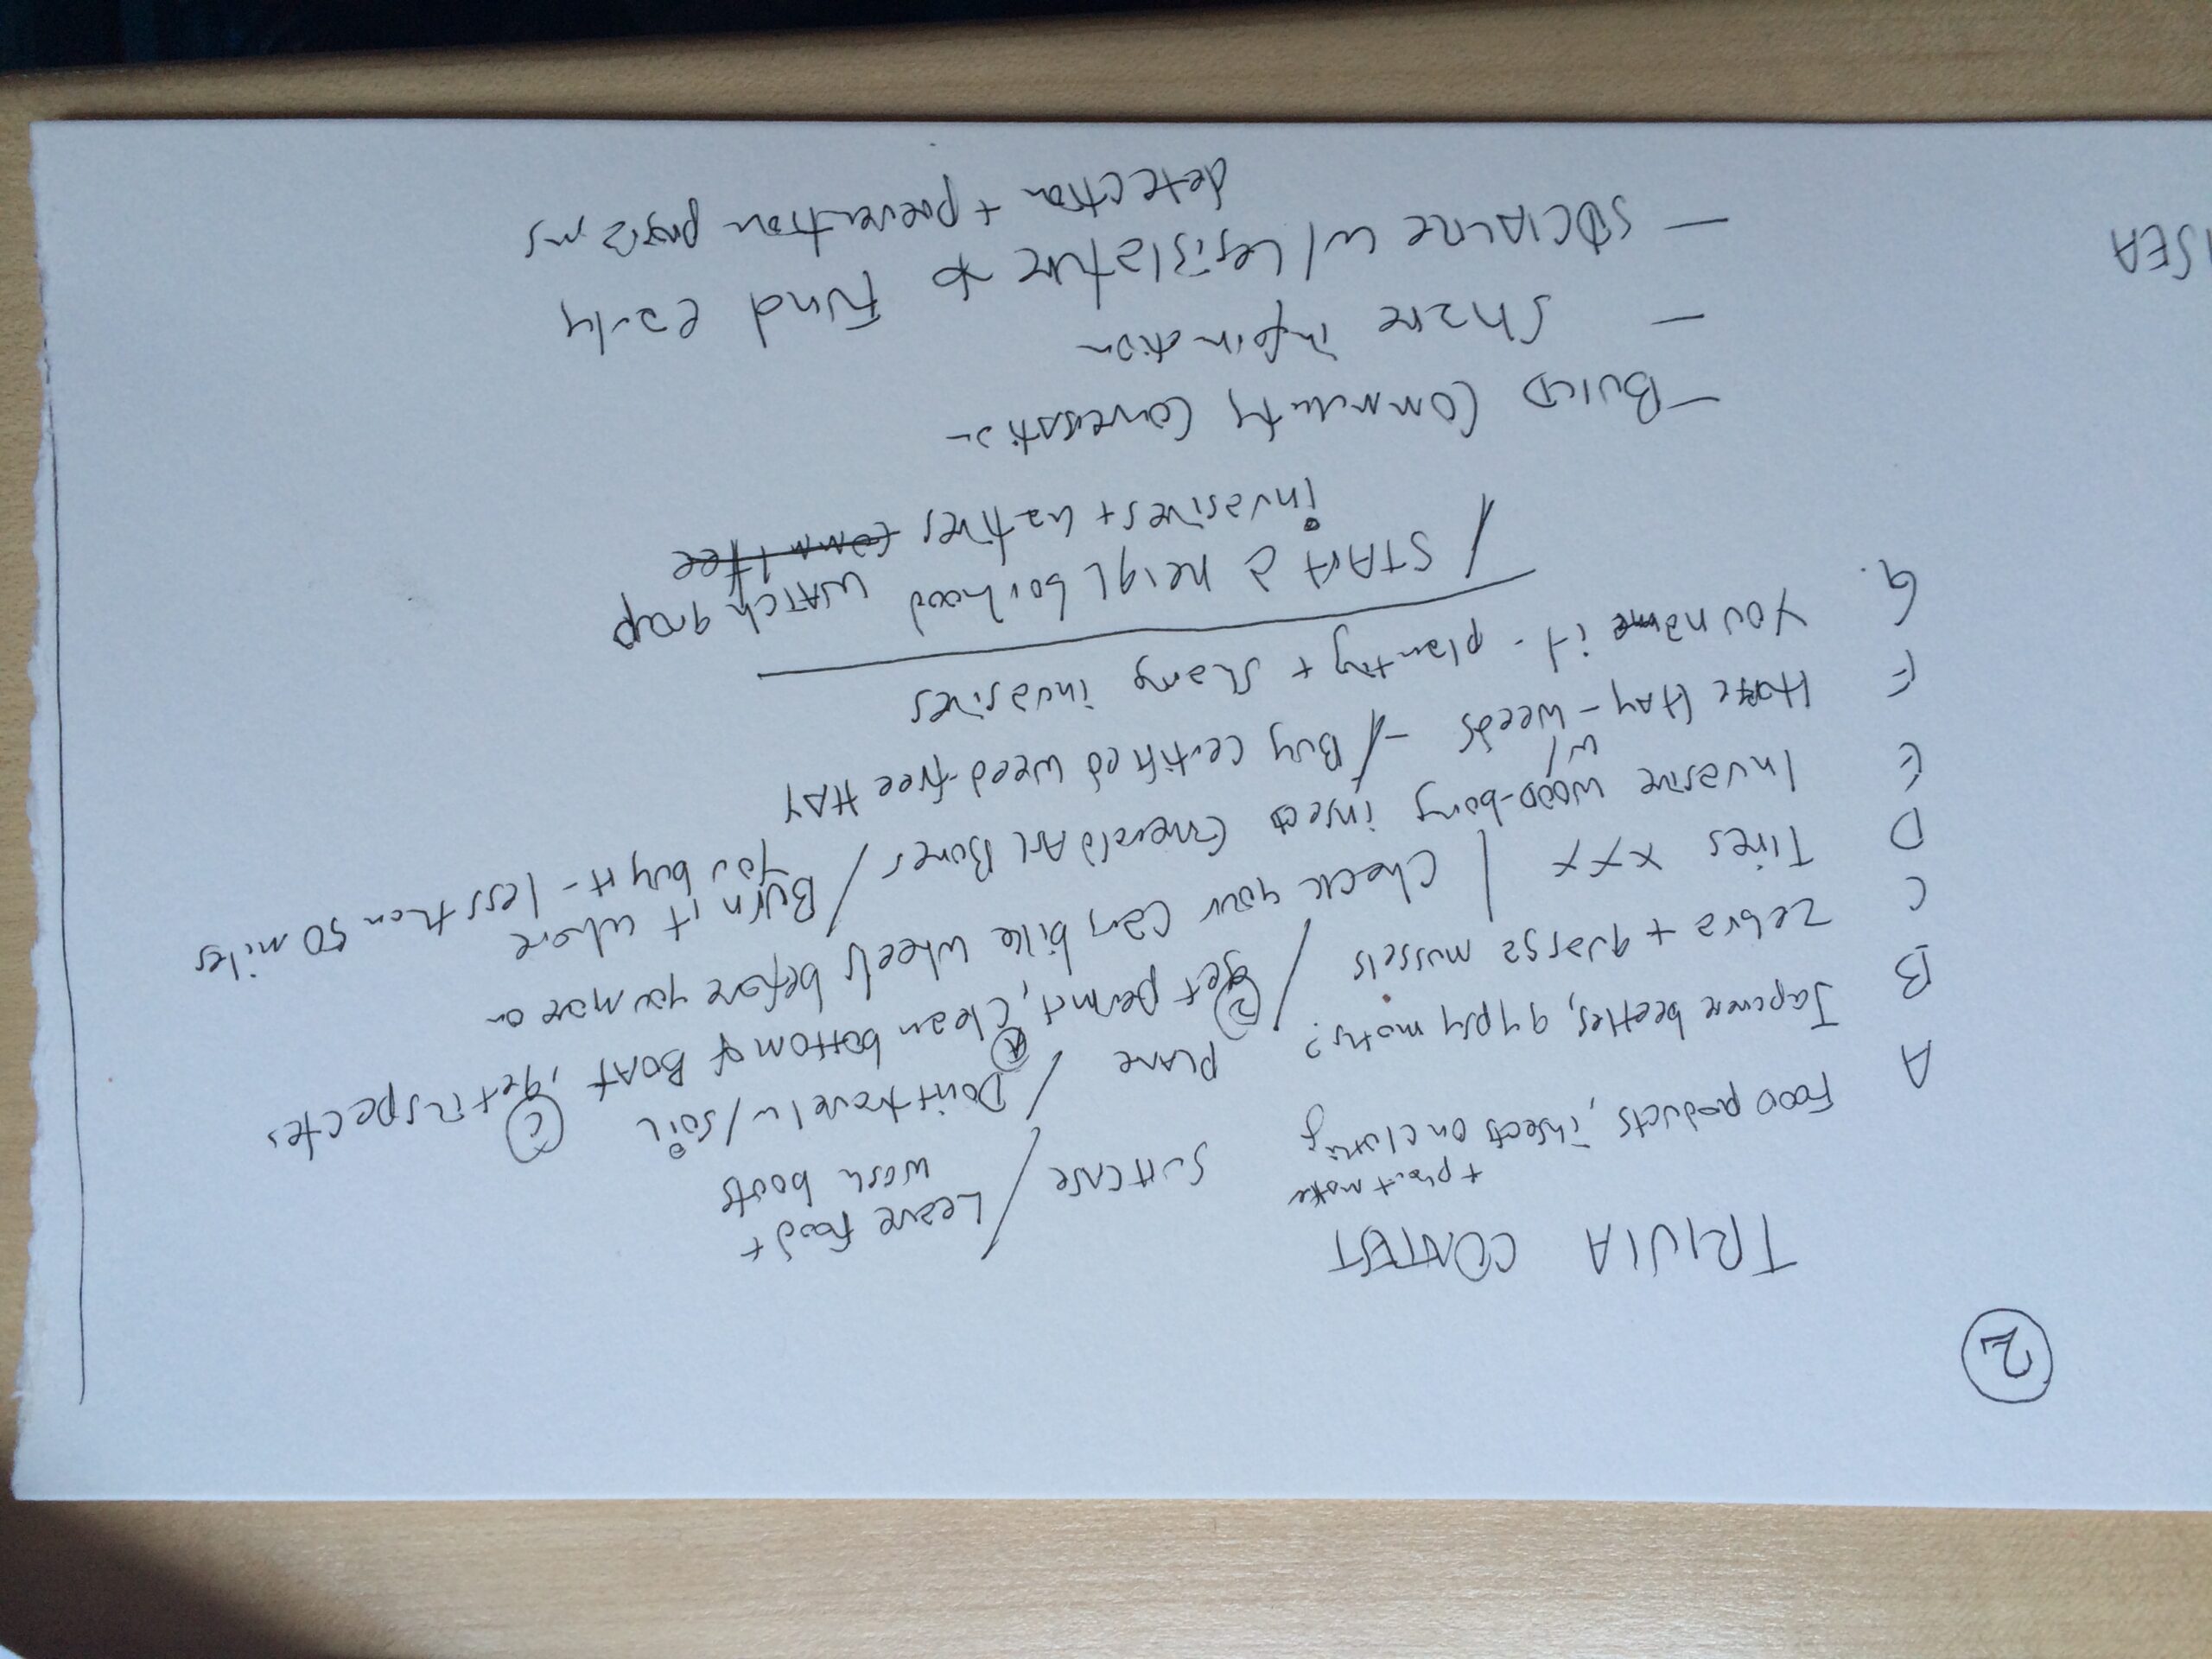 2
TRIVIA CONTEST
A Food products, insects on clothing SUITCASE / Leave food +
wash boots
B Japanese beetles, gypsy moths? PLANE / Don't travel w/ soil
C zebra + quagga mussels / get permit, clean bottom of BOAT, get inspected
D Tires xxx / Check your car, bike wheels before you move on
E Invasive wood-boring insects Emerald Ash Borer / Burn it where
you buy it - less than 50 miles
F Horse HAY - w/ weeds - / Buy certified weed-free HAY
G. You name it - planting + sharing invasives
/ START a neighborhood WATCH group
invasives + natives committee
- BUILD Community Conversation
- share information
- SOCIALIZE w/ Legislature to fund early
detection + prevention programs
SEA